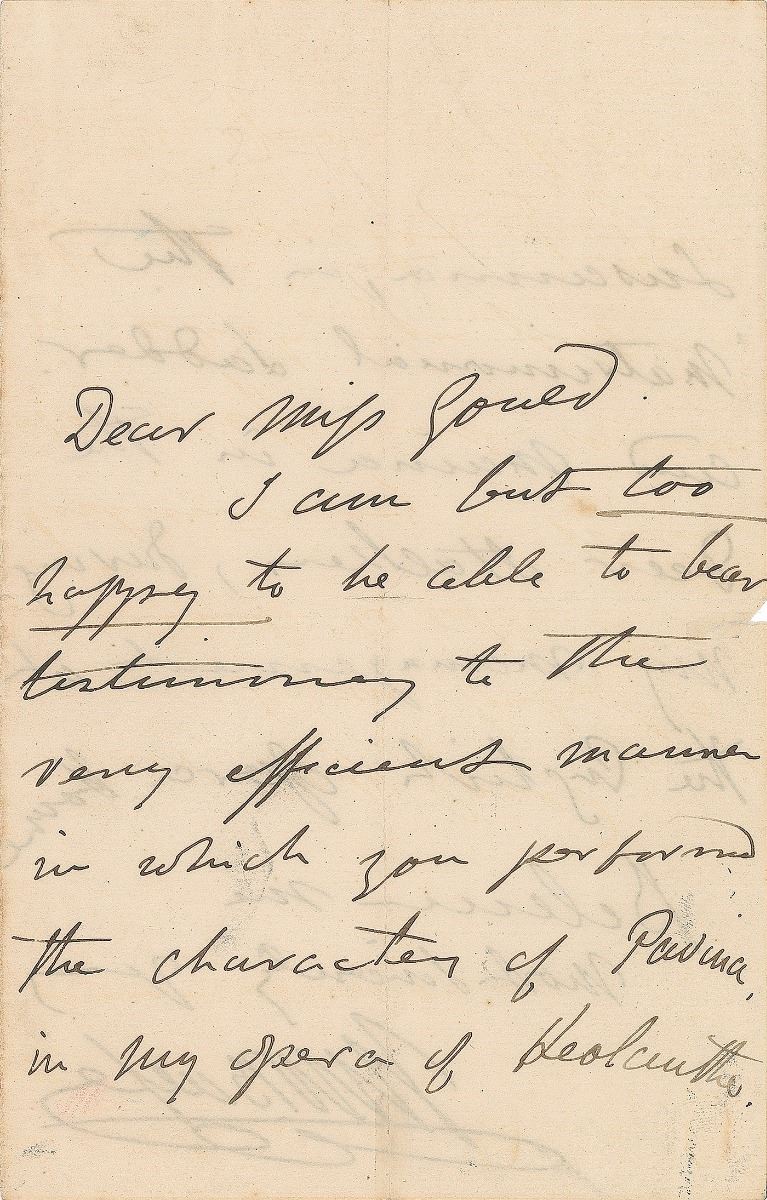 Dear Miss Gould.
I am but too
happy to be able to bear
testimony to the
very efficient manner
in which you performed
the character of Pavina,
in my opera of Keolanthe.